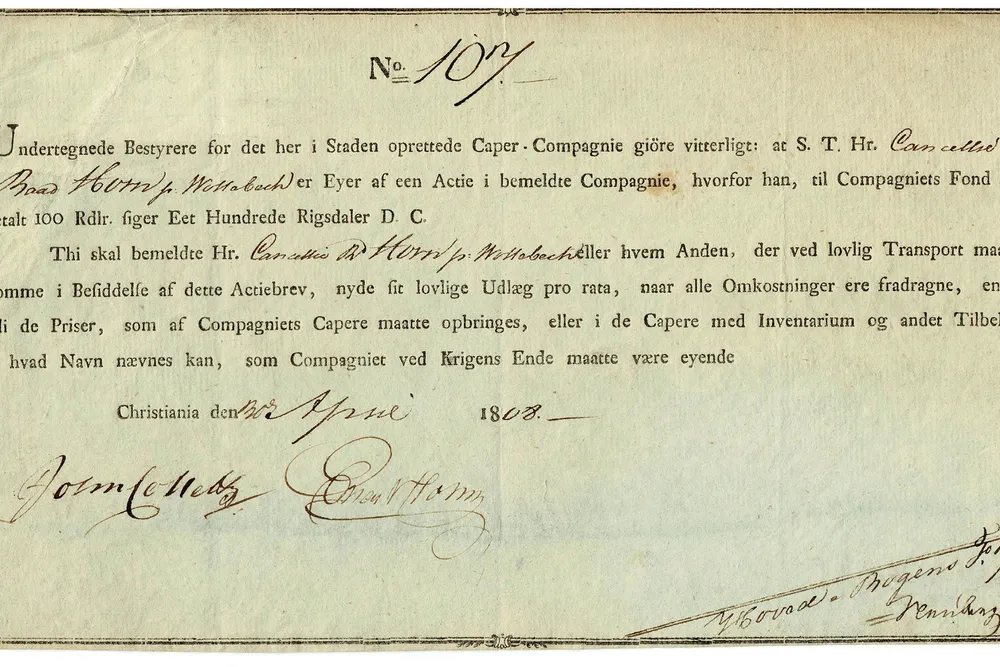 No. 107.
Undertegnede Bestyrere for det her i Staden oprettede Caper-Compagnie giöre vitterligt: at S. T. Hr. Cancellie
Raad Horn p. Wollebech er Eyer af een Actie i bemeldte Compagnie, hvorfor han, til Compagniets Fond
talt 100 Rdlr. siger Eet Hundrede Rigsdaler D. C.
Thi skal bemeldte Hr. Cancellie R Horn p. Wollebech eller hvem Anden, der ved lovlig Transport maa
omme i Besiddelse af dette Actiebrev, nyde sit lovlige Udlæg pro rata, naar alle Omkostninger ere fradragne, en
li de Priser, som af Compagniets Capere maatte opbringes, eller i de Capere med Inventarium og andet Tilbe
hvad Navn nævnes kan, som Compagniet ved Krigens Ende maatte være eyende
Christiania den 30 April 1808.
John Collett Horn
Hoved-Bogens Fo